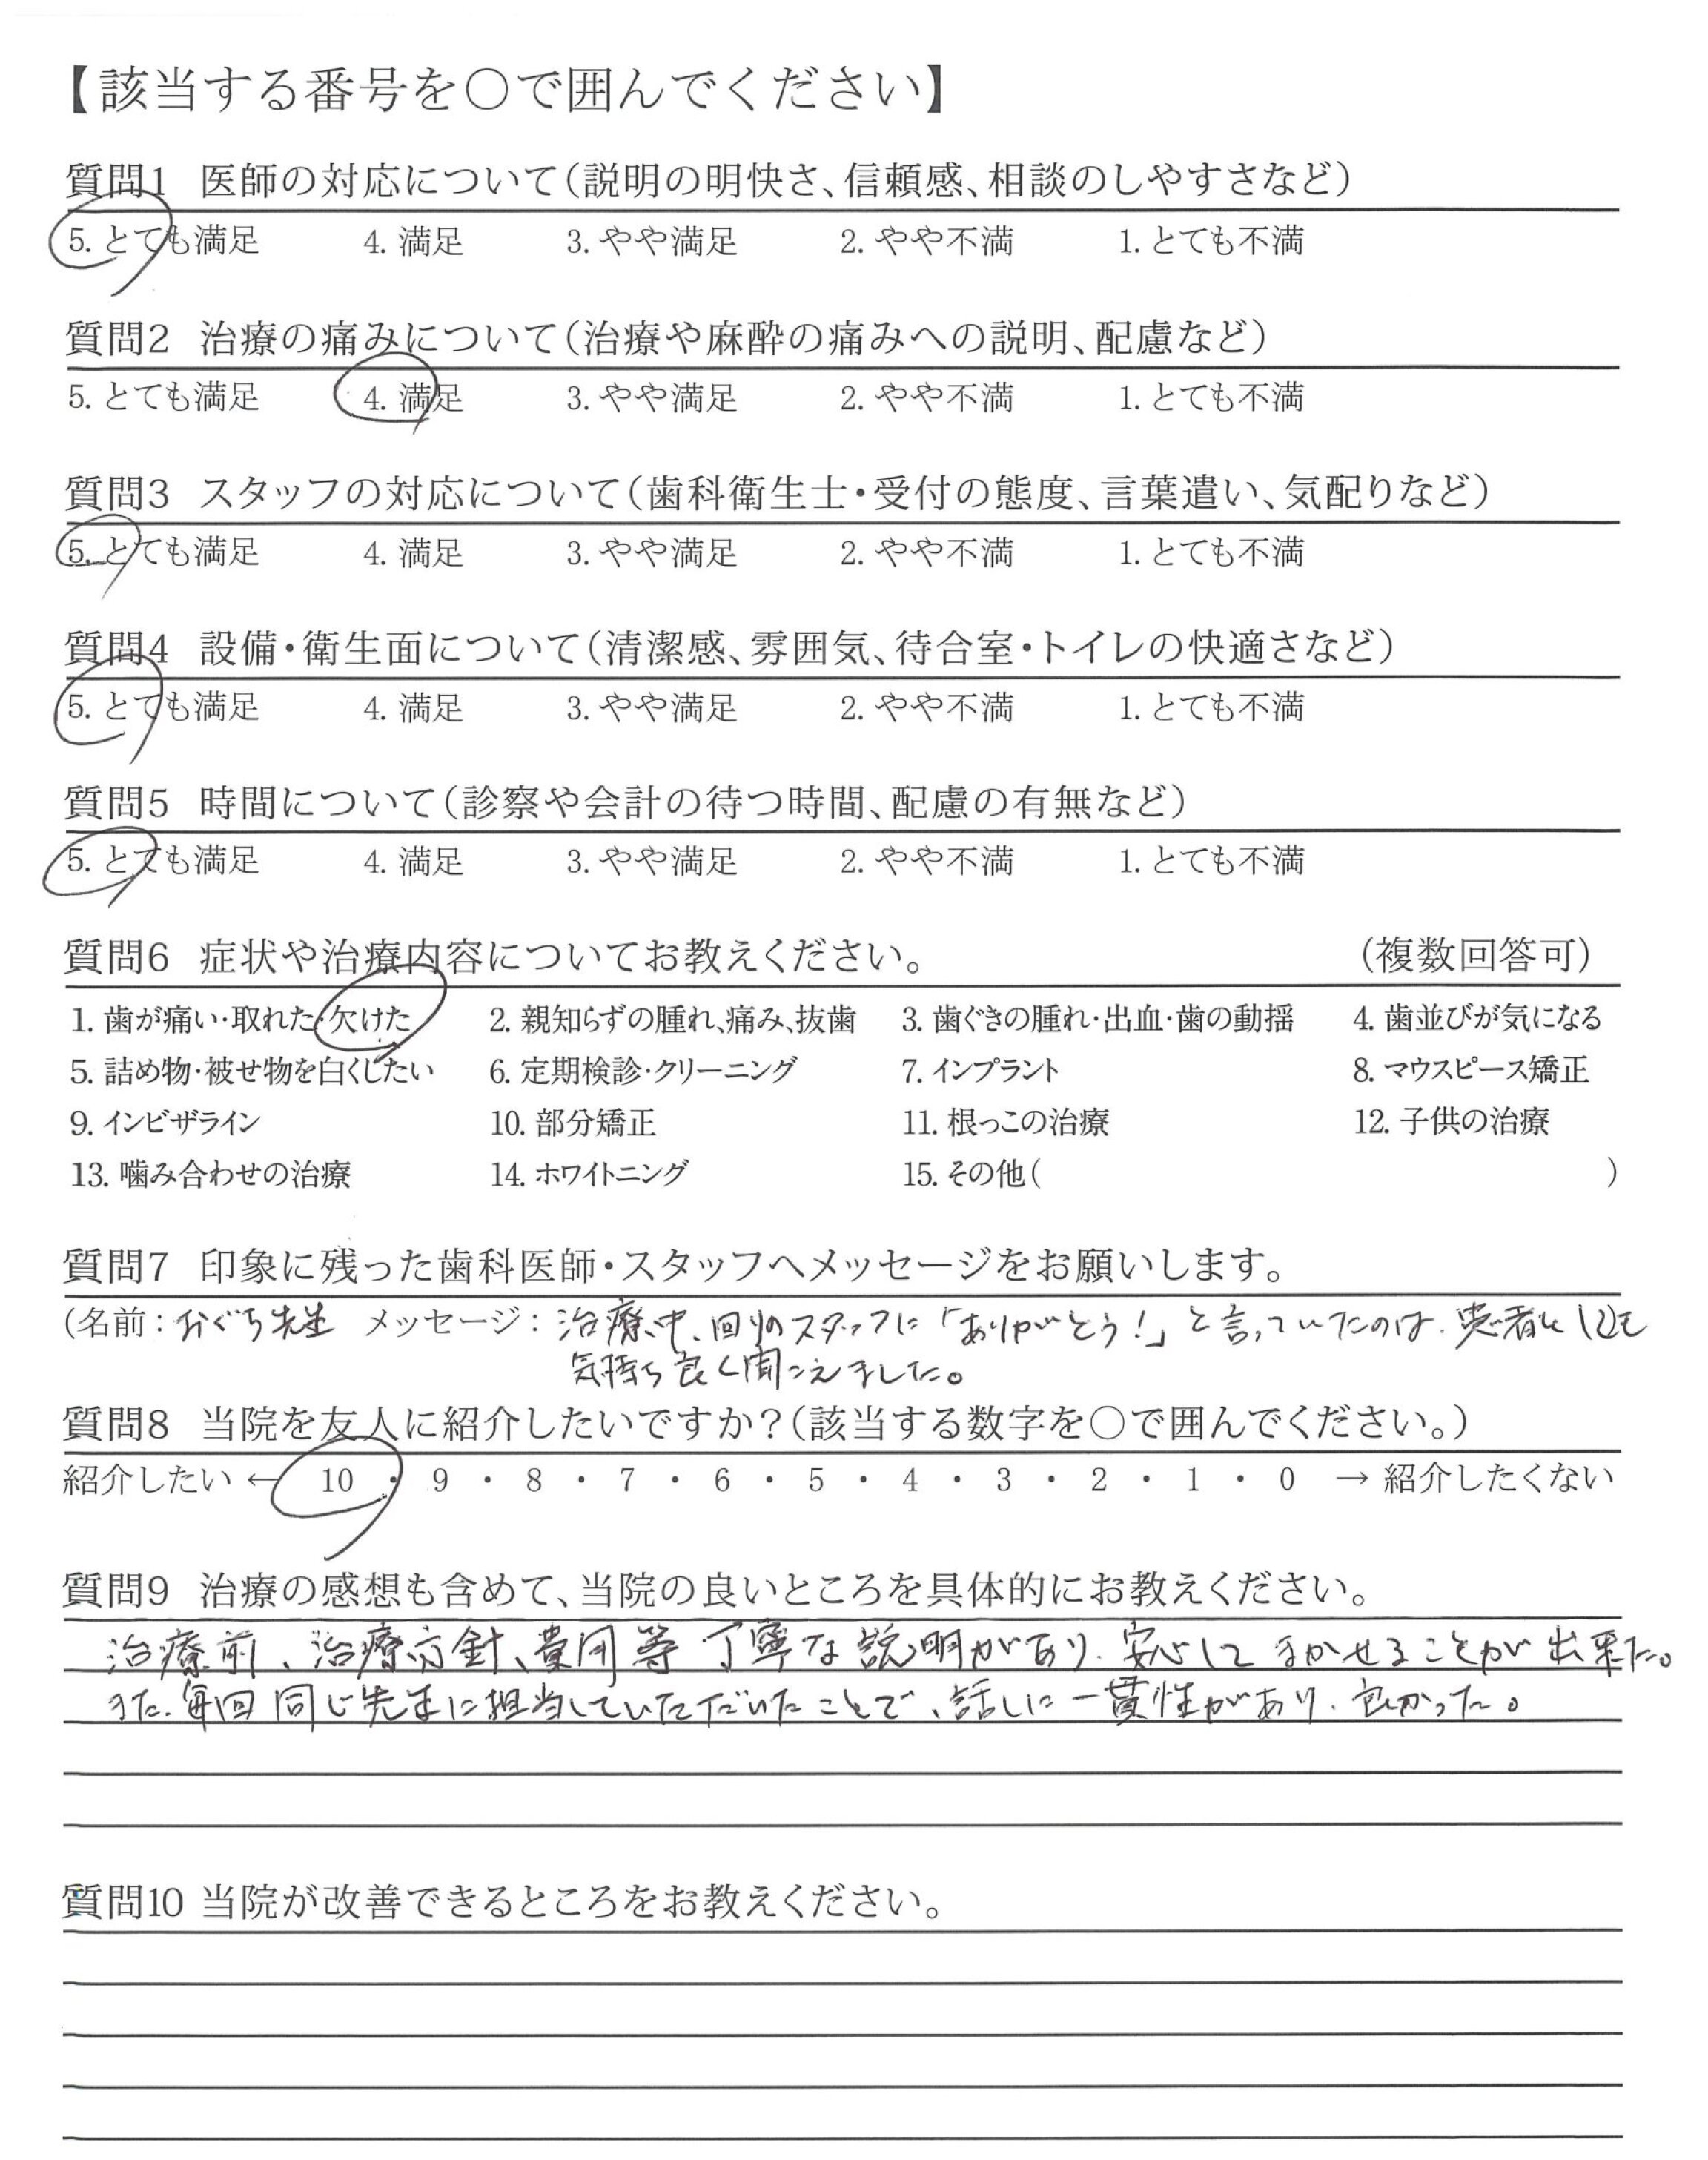 【該当する番号を○で囲んでください】
質問1 医師の対応について(説明の明快さ、信頼感、相談のしやすさなど)
5. とても満足 4. 満足 3. やや満足 2. やや不満 1. とても不満
質問2 治療の痛みについて(治療や麻酔の痛みへの説明、配慮など)
5. とても満足 4. 満足 3. やや満足 2. やや不満 1. とても不満
質問3 スタッフの対応について(歯科衛生士・受付の態度、言葉遣い、気配りなど)
5. とても満足 4. 満足 3. やや満足 2. やや不満 1. とても不満
質問4 設備・衛生面について(清潔感、雰囲気、待合室・トイレの快適さなど)
5. とても満足 4. 満足 3. やや満足 2. やや不満 1. とても不満
質問5 時間について(診察や会計の待つ時間、配慮の有無など)
5. とても満足 4. 満足 3. やや満足 2. やや不満 1. とても不満
質問6 症状や治療内容についてお教えください。 (複数回答可)
1. 歯が痛い・取れた・欠けた 2. 親知らずの腫れ、痛み、抜歯 3. 歯ぐきの腫れ・出血・歯の動揺 4. 歯並びが気になる
5. 詰め物・被せ物を白くしたい 6. 定期検診・クリーニング 7. インプラント 8. マウスピース矯正
9. インビザライン 10. 部分矯正 11. 根っこの治療 12. 子供の治療
13. 噛み合わせの治療 14. ホワイトニング 15. その他( )
質問7 印象に残った歯科医師・スタッフへメッセージをお願いします。
(名前：おぐち先生 メッセージ：治療中、回りのスタッフに「ありがとう!」と言っていたのは、患者としても
気持ち良く聞こえました。
質問8 当院を友人に紹介したいですか?(該当する数字を○で囲んでください。)
紹介したい ← 10 ・ 9 ・ 8 ・ 7 ・ 6 ・ 5 ・ 4 ・ 3 ・ 2 ・ 1 ・ 0 → 紹介したくない
質問9 治療の感想も含めて、当院の良いところを具体的にお教えください。
治療前、治療方針、費用等 丁寧な説明があり、安心して まかせることが出来た。
また、毎回同じ先生に担当していただいたことで、話しに一貫性があり、良かった。
質問10 当院が改善できるところをお教えください。